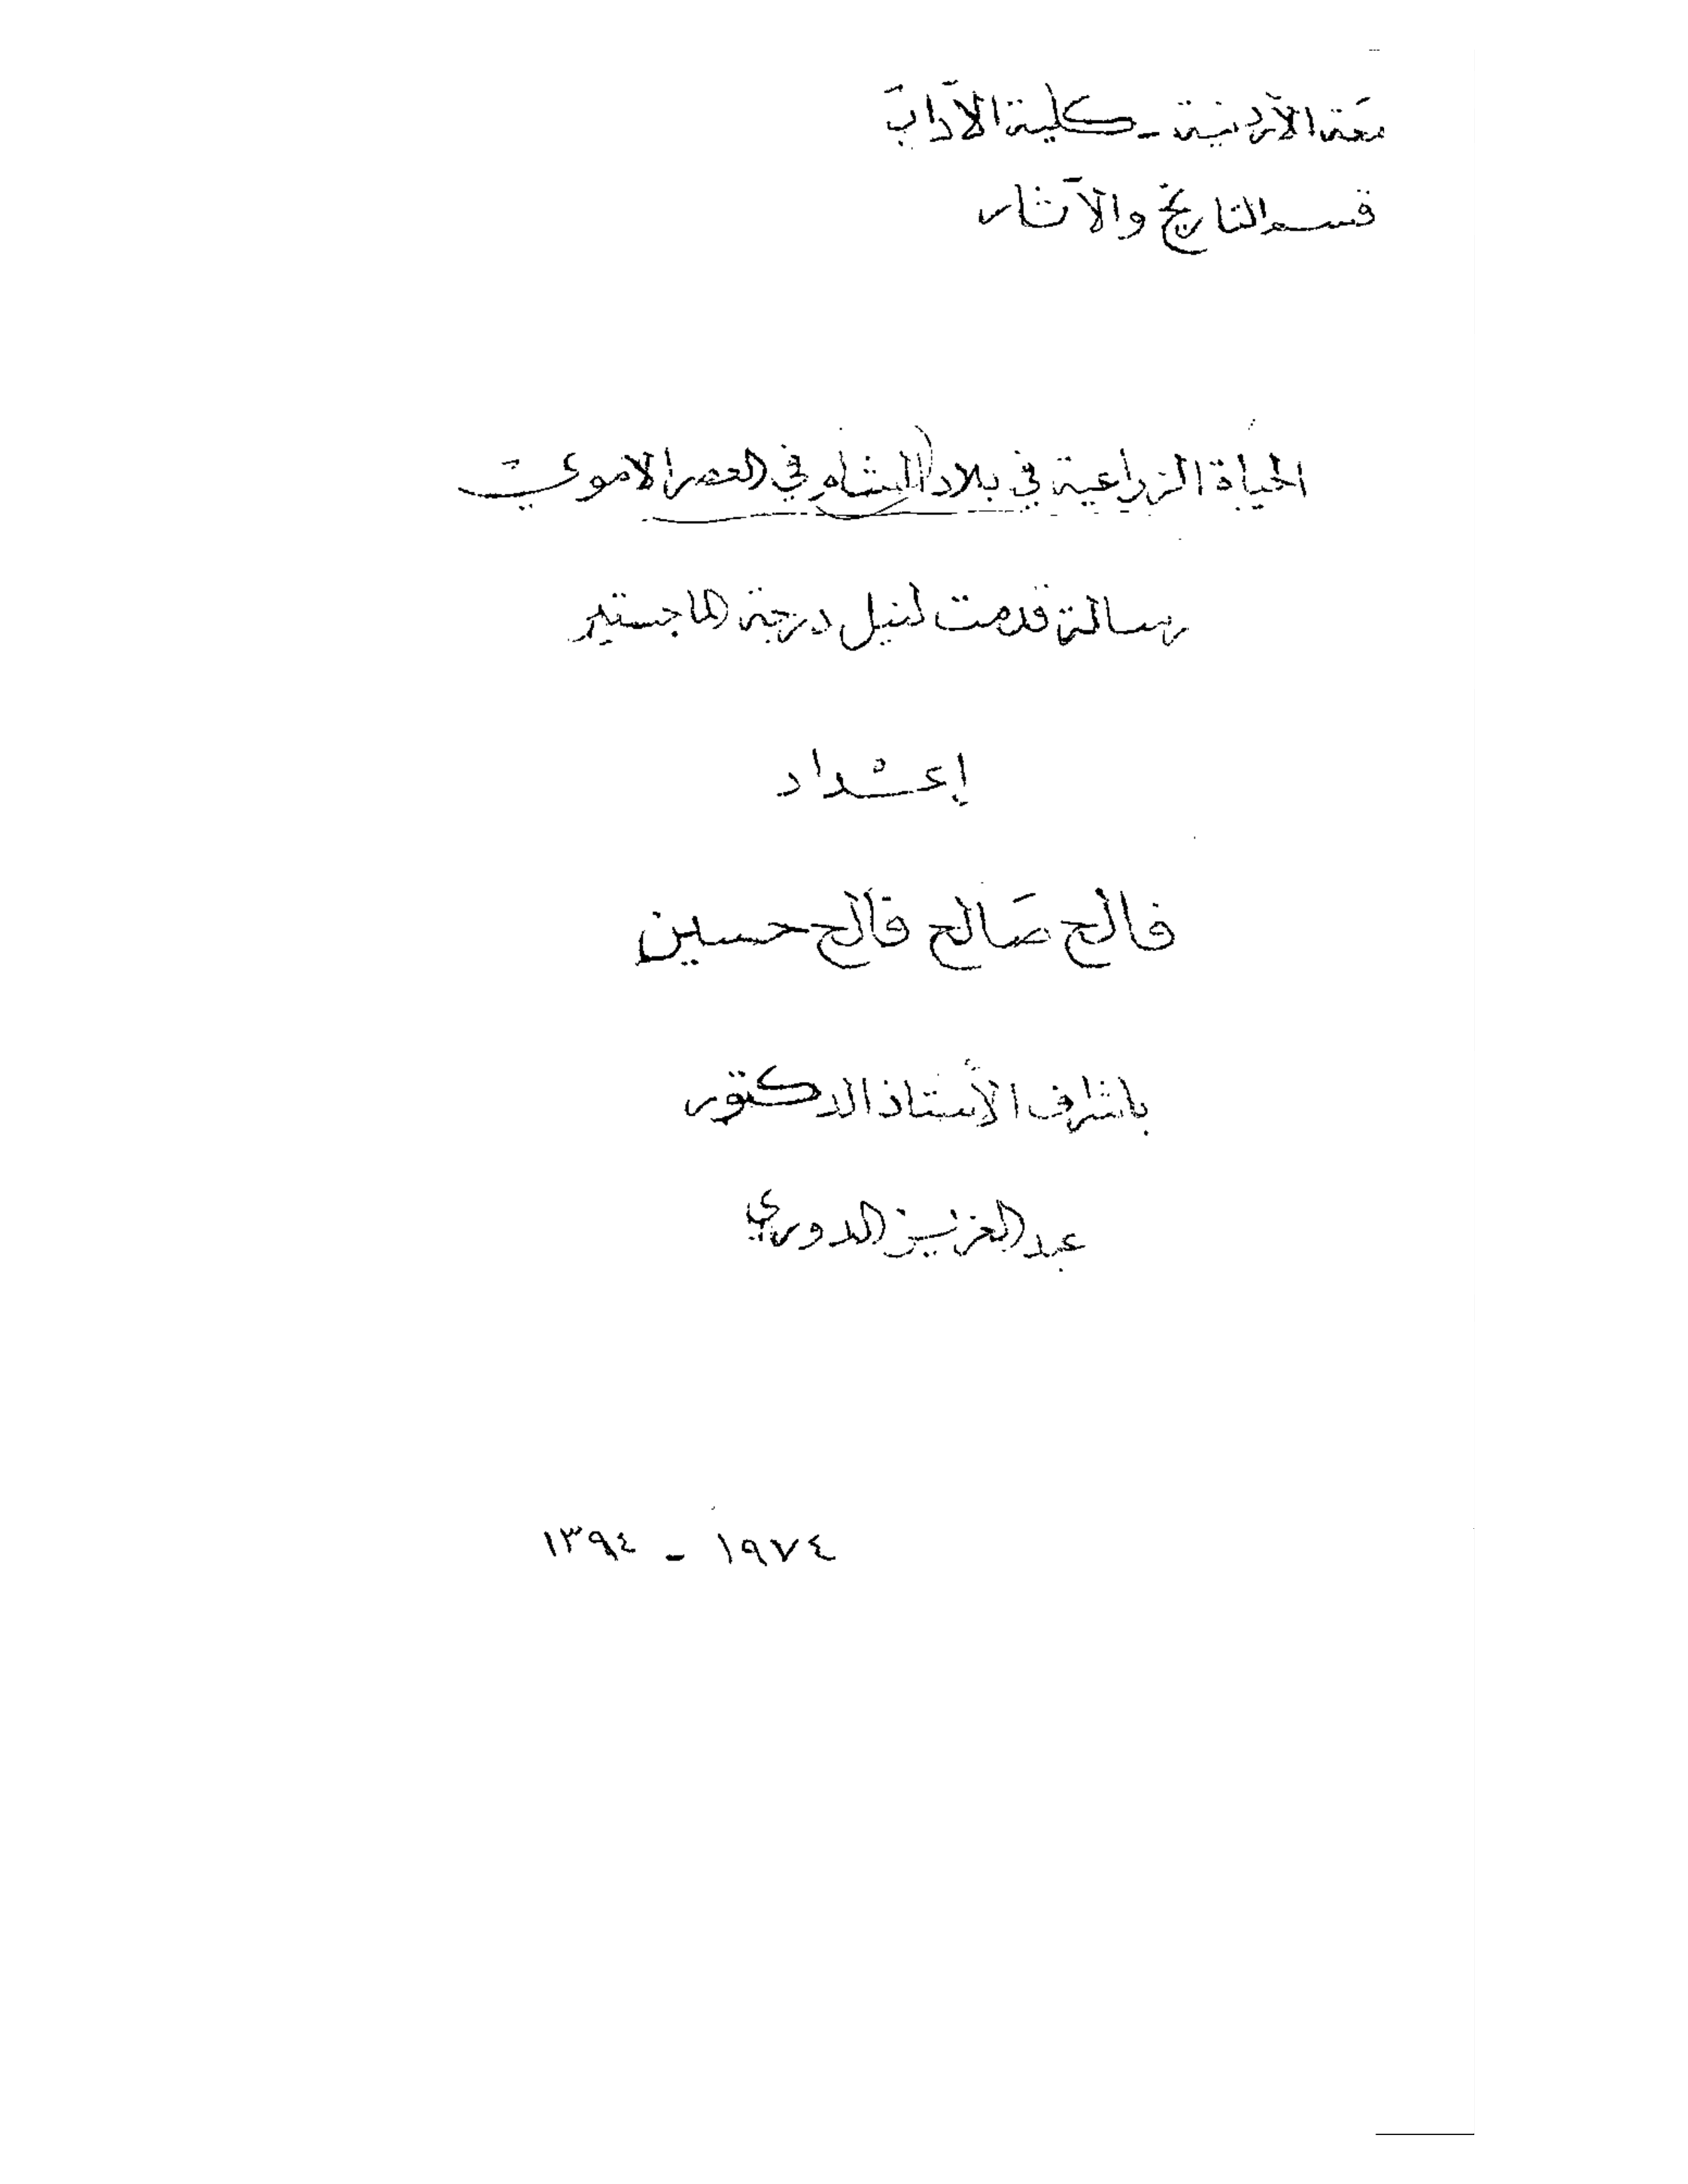 معة الأردنية - كلية الآداب
قسم التاريخ والآثار
الحياة الزراعية في بلاد الشام في العصر الاموي
رسالة قدمت لنيل درجة الماجستير
إعداد
فالح صالح فالح حسين
باشراف الأستاذ الدكتور
عبد العزيز الدوري
١٣٩٤ - ١٩٧٤